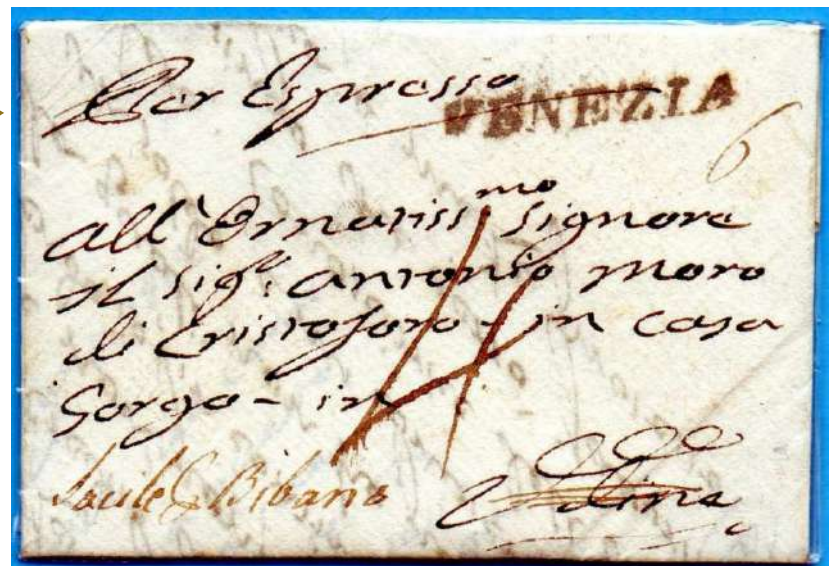 Per Espresso
VENEZIA
6
All'Ornatissmo Signore
il Sigr. Antonio Moro
di Cristoforo - in casa
Gorgo - in
4
Sacile & Bibano
Udine